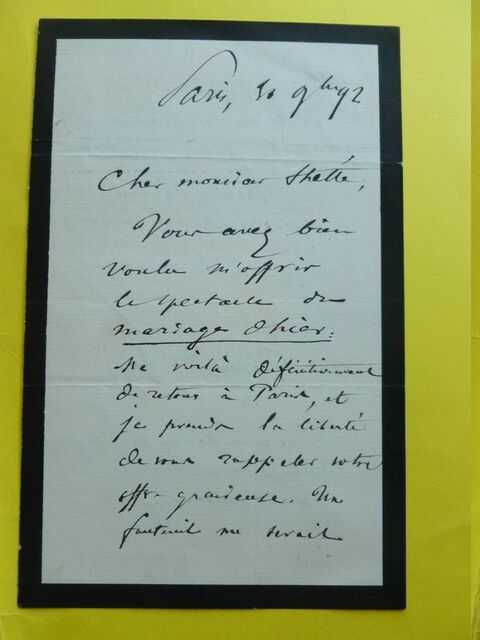 Paris, 30 9bre 92
Cher monsieur
Vous avez bien
voulu m'offrir
le spectacle du
mariage d'hier:
Me voilà définitivement
de retour à Paris, et
je prends la liberté
de vous rappeler votre
offre gracieuse. Un
fauteuil me serait